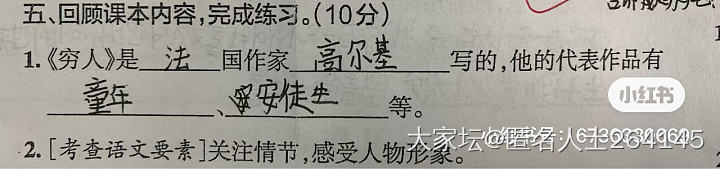 五、回顾课本内容,完成练习。(10分)
1.《穷人》是 法 国作家 高尔基 写的,他的代表作品有
小红书
童年 、安徒生 等。
大家坛@匿名人士264145
2.[考查语文要素]关注情节,感受人物形象。